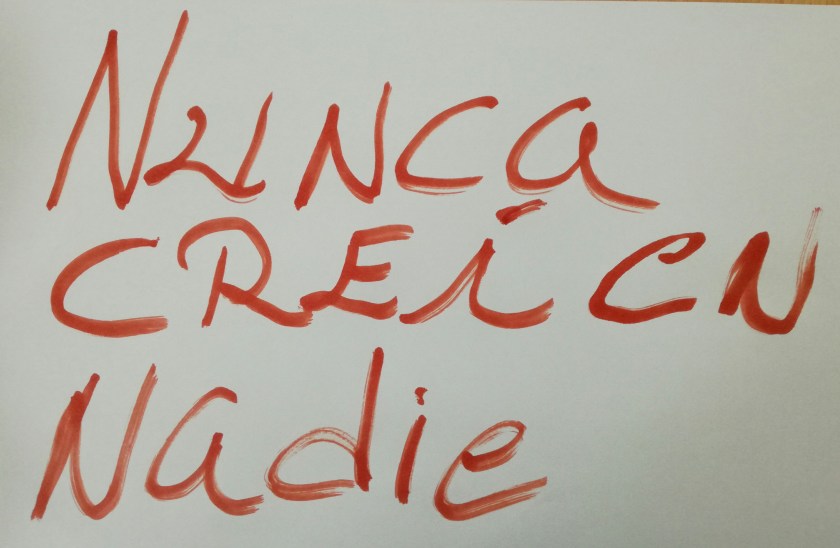 NUNCA
CREÍ CN
NadiE